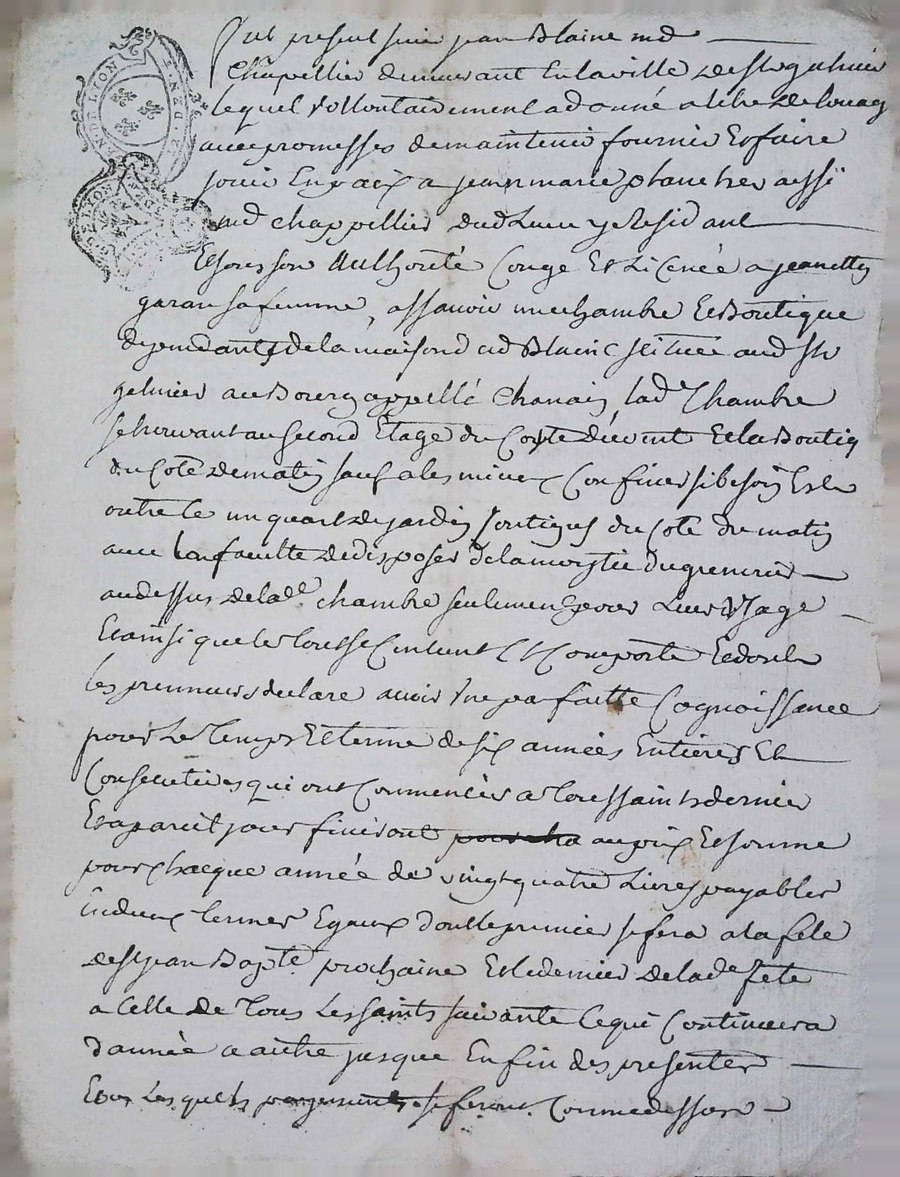 Fut present sieur jean Blaine md
Chapellier demeurant En la ville de St galmier
lequel vollontairement a donné a titre de louag
avec promesses de maintenir fournir Et faire
jouir En paix a jean marie planchet aussi
md chappellier dud Lieu y Residant
Et sous son Authorité Congé Et Licence a jeanette
garan sa femme, assavoir une chambre Et Boutique
dependants de la maison dud Blaine scituée aud St
galmier au Bourg appellé Chanain lad.e Chambre
se trouvant au second Etage du Coste du vent Et la Boutiq
du Coté de matin sauf a les mieux Confiner si besoin Est
outre le un quart de jardin joutignt du Coté du matin
avec la faculté de disposer de la moytié du grenier
au dessus de lad.e chambre seulement pour Leur usage
Et ainsi que le tout se Contient Et Comporte Et dont
les prenneurs declare avoir une parfaitte Cognoissance
pour Le Temps Et terme de six années Entieres Et
Consecutives qui ont Commencées a Toussaints dernier
Et a pareil jour finiront au prix Et somme
pour Chacque année de vingt quatre Livres payables
En deux termes Egaux dont le premier se fera a la fete
de St jean Bapte prochaine Et le dernier de lad.e fete
a Celle de Tous Les saints suivante Ce qui Continuera
d'année a autre jusque En fin des presentes
Tous Lesquels payements se feront Comme dessus